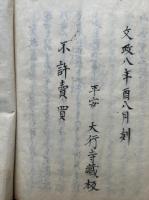 文政八年酉八月刻
平安 大行寺藏板
不許賣買